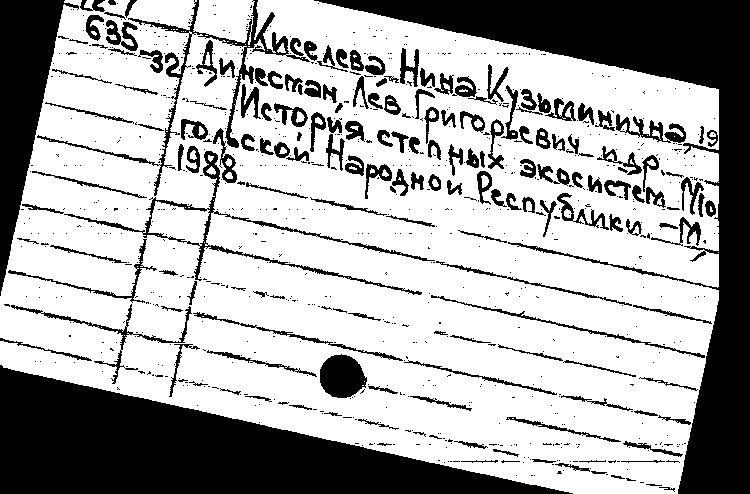 635
-32
Киселева Нина Кузьминична, 19
Динесман, Лев Григорьевич и др.
История степных экосистем Мо
гольской Народной Республики. – М.,
1988